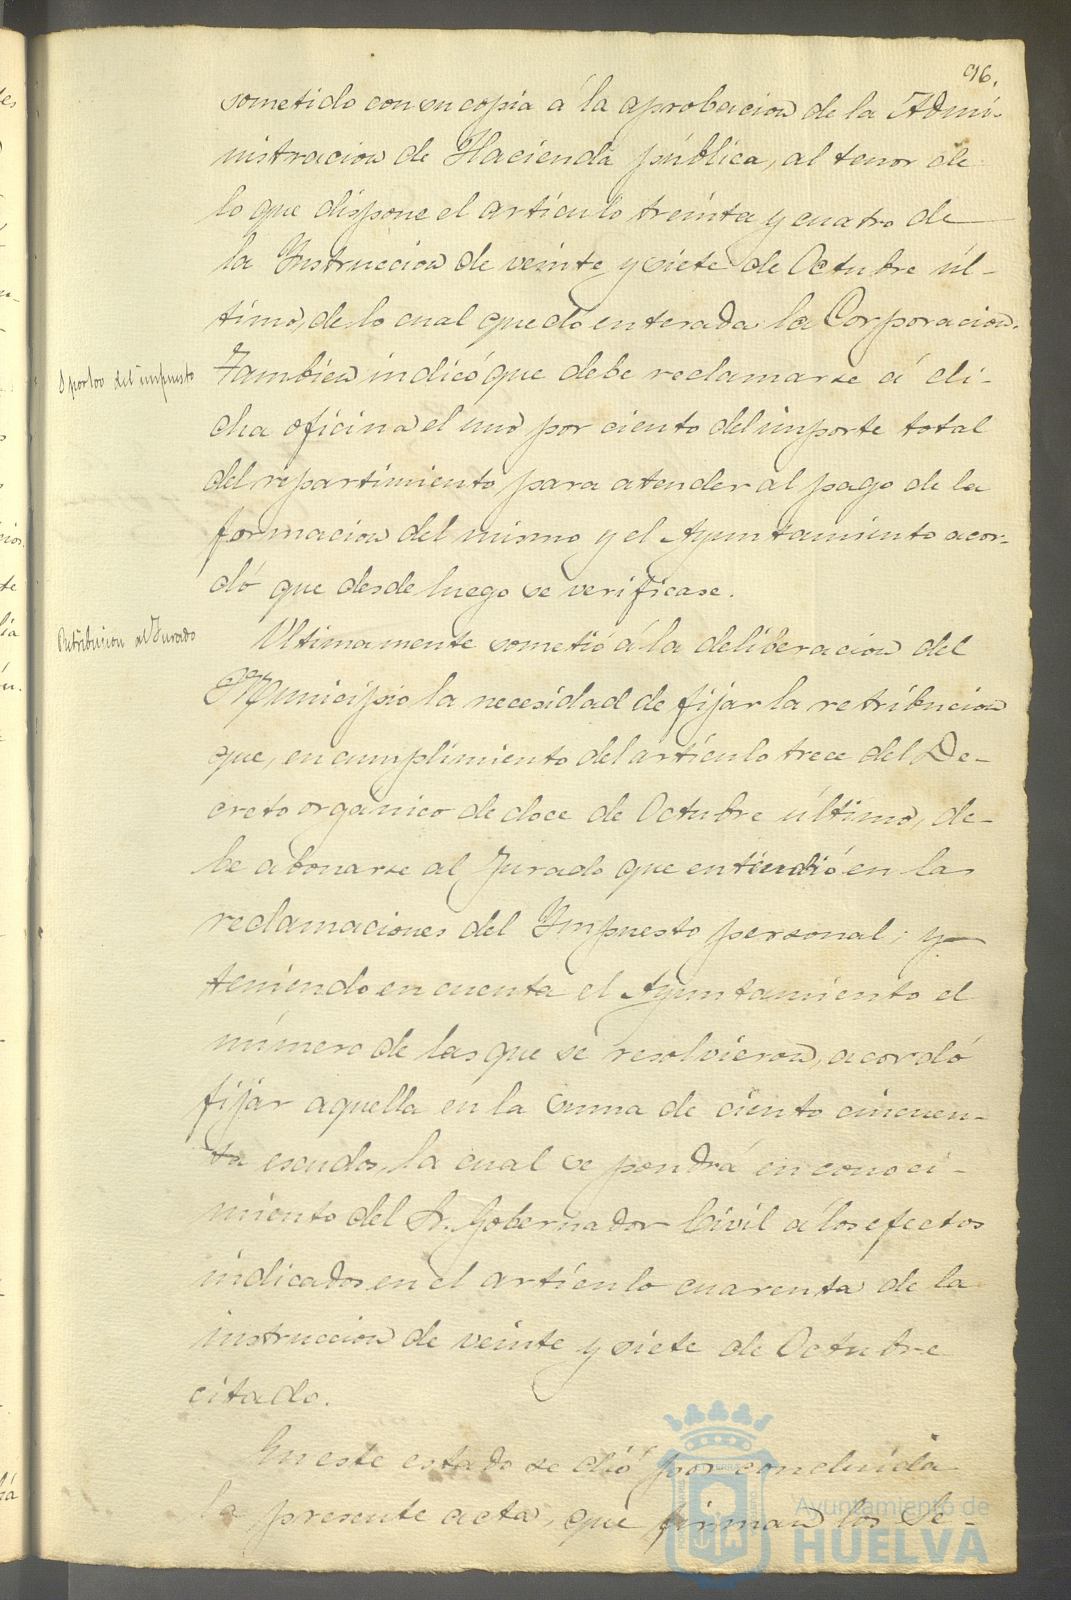 96.
sometido con su copia á la aprobacion de la Admi-
nistracion de Hacienda pública, al tenor de
lo que dispone el artículo treinta y cuatro de
la Instruccion de veinte y siete de Octubre úl-
timo, de lo cual quedó enterada la Corporacion.
del impuesto
Tambien indicó que debe reclamarse á di-
cha oficina el uno por ciento del importe total
del repartimiento para atender al pago de la
formacion del mismo y el Ayuntamiento acor-
dó que desde luego se verificase.
Retribucion al Jurado
Ultimamente sometió á la deliberacion del
Municipio la necesidad de fijar la retribucion
que, en cumplimiento del artículo trece del De-
creto orgánico de doce de Octubre último, de-
be abonarse al Jurado que entendió en la
reclamaciones del Impuesto personal; y
teniendo en cuenta el Ayuntamiento el
número de las que se resolvieron, acordó
fijar aquella en la suma de ciento cincuen-
ta escudos, la cual se pondrá en conoci-
miento del Sr. Gobernador Civil á los efectos
indicados en el artículo cuarenta de la
instruccion de veinte y siete de Octubre
citado.
En este estado se dió por concluida
la presente acta, que firman los Se-
Ayuntamiento de
HUELVA